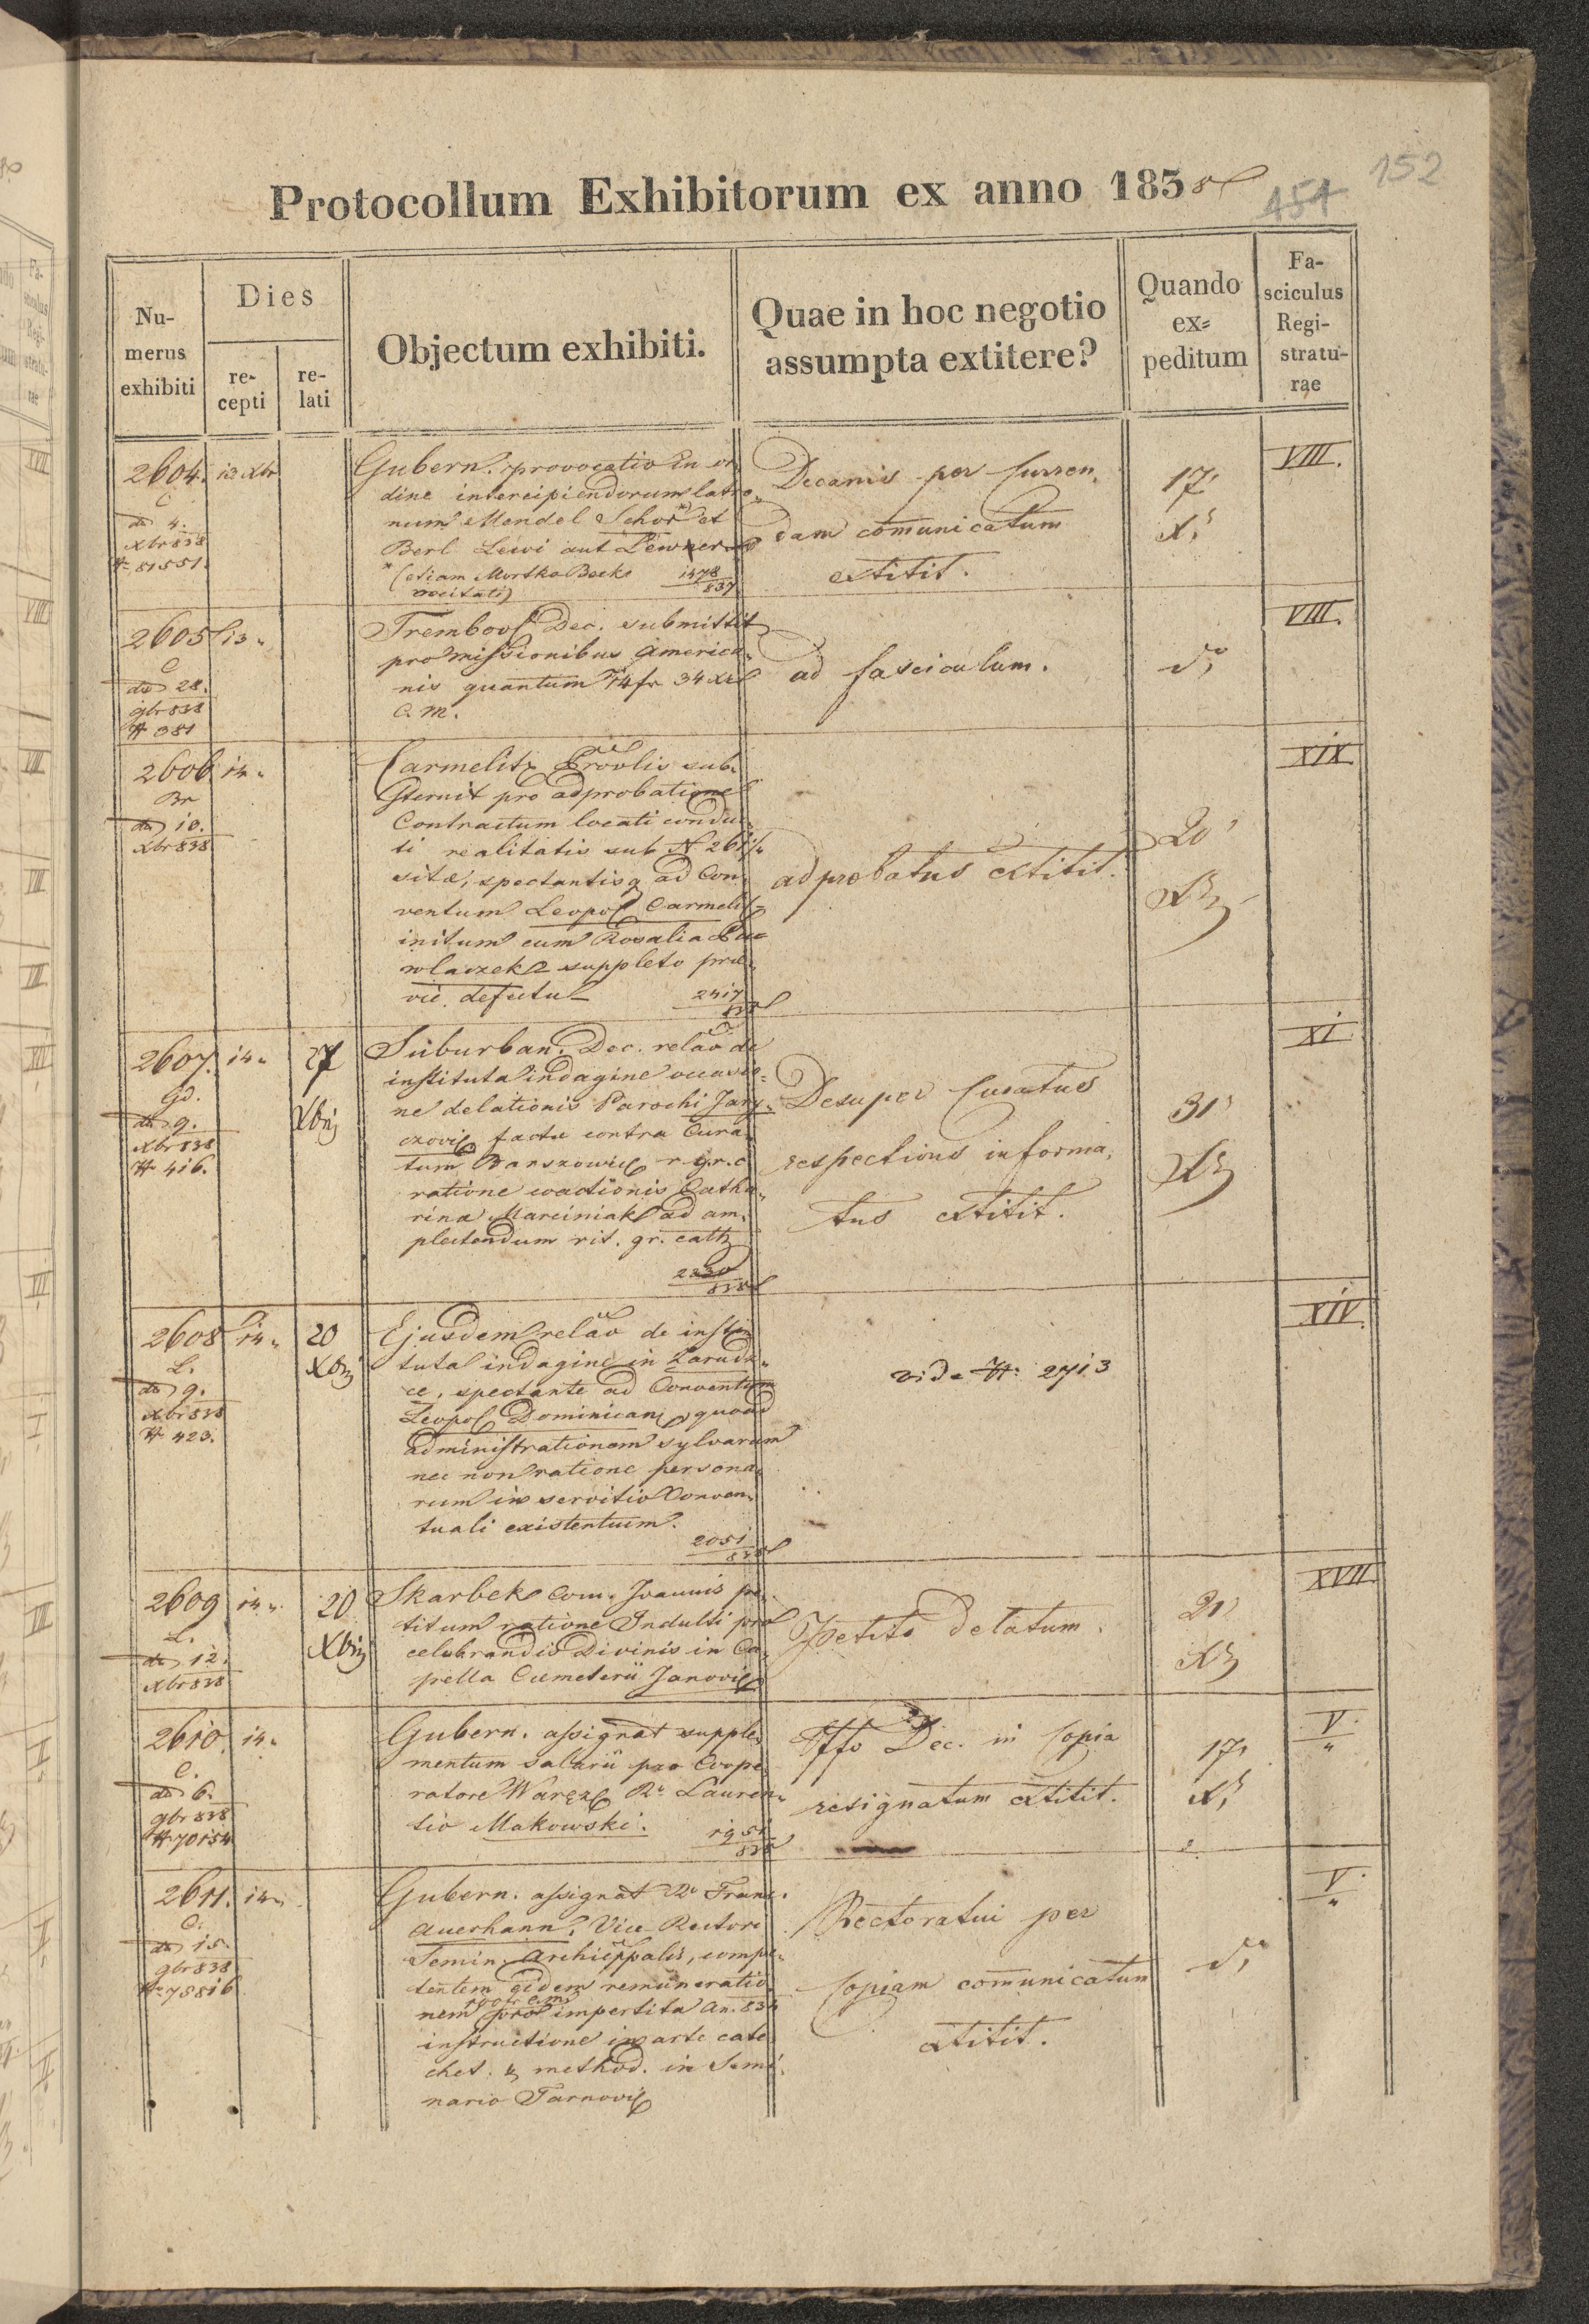 152
Protocollum Exhibitorum ex anno 1838
454
Numerus exhibiti
Dies
recepti
relati
Objectum exhibiti.
Quae in hoc negotio assumpta extitere?
Quando expeditum
Fasciculus Registraturae
2604. 13 Xbr
C
dto 4.
Xbr 838
N 81551.
Gubern. provocatio in or„
dine intercipiendorum latro„
num Mendel Schor *) et
Berl Lewi aut Lewner
* (etiam Mortko Beck
vocitati)
1478
837
Decanis per Curren„
dam comunicatum
extitit.
17
X
VIII.
2605 13„
C
dto 28.
9br 838
N 381
Trembovl Dec. submittit
pro missionibus America„
nis quantum 74 fr 34 xr
C. M.
ad fasciculum.
do
VIII.
2606 14„
Br
dto 10.
Xbr 838
Carmelit Provlis sub„
sternit pro adprobatione
Contractum locati conduc„
ti realitatis sub N 261
sitæ, spectantisq ad Con„
ventum Leopol Carmelit
initum cum Rosalia Pa=
wlaczek suppleto præ„
vie defectu
2417
838
adprobatus extitit.
20
Xb
XIX
2607. 14„
Gd.
dto 9.
Xbr 838
N 416.
27
Xbr
Suburban. Dec. relao de
instituta indagine occasio=
ne delationis Parochi Jary„
czovi factæ contra Cura„
tum Barszowic r. gr. c.
ratione coactionis Catha„
rina Marciniak ad am„
plectendum rit. gr. cath
2220
838
Desuper Curatus
respectivus informa„
tus extitit.
31
Xb
XI
2608 14„
L.
dto 9.
Xbr 838
N 423.
20
Xbr
Ejusdem relao de insti
tuta indagine in Zarudz„
ce, spectante ad Conventum
Leopol Dominican, quoad
administrationem sylvarum
nec non ratione persona„
rum in servitio Conven„
tuali existentium.
2051
838
vide N: 2713
XIV.
2609 14„
L.
dto 12.
Xbr 838
20
Xbr
Skarbek Com. Joannis pe„
titum ratione Indulti pro
celebrandis Divinis in Ca„
pella Cumeterii Janovi
Petito delatum.
21
Xb
XVII
2610. 14„
C.
dto 6.
9br 838
N 70154
Gubern. assignat supple„
mentum salarii pro Coope„
ratore Waręz R. Lauren„
tio Makowski.
1951
838
Dec. in Copia
resignatum extitit.
17
X
V.
2611. 14„
C.
dto 15.
9br 838
N 78816
Gubern. assignat R. Franc.
Auerhann, Vice Rectori
Semin. Archieppalis, compe„
tentem eidem remuneratio
nem pro impertita an. 834
instructione in arte cate
chet. & method. in Semi„
nario Tarnovi
Rectoratui per
Copiam comunicatum
extitit.
do
V.